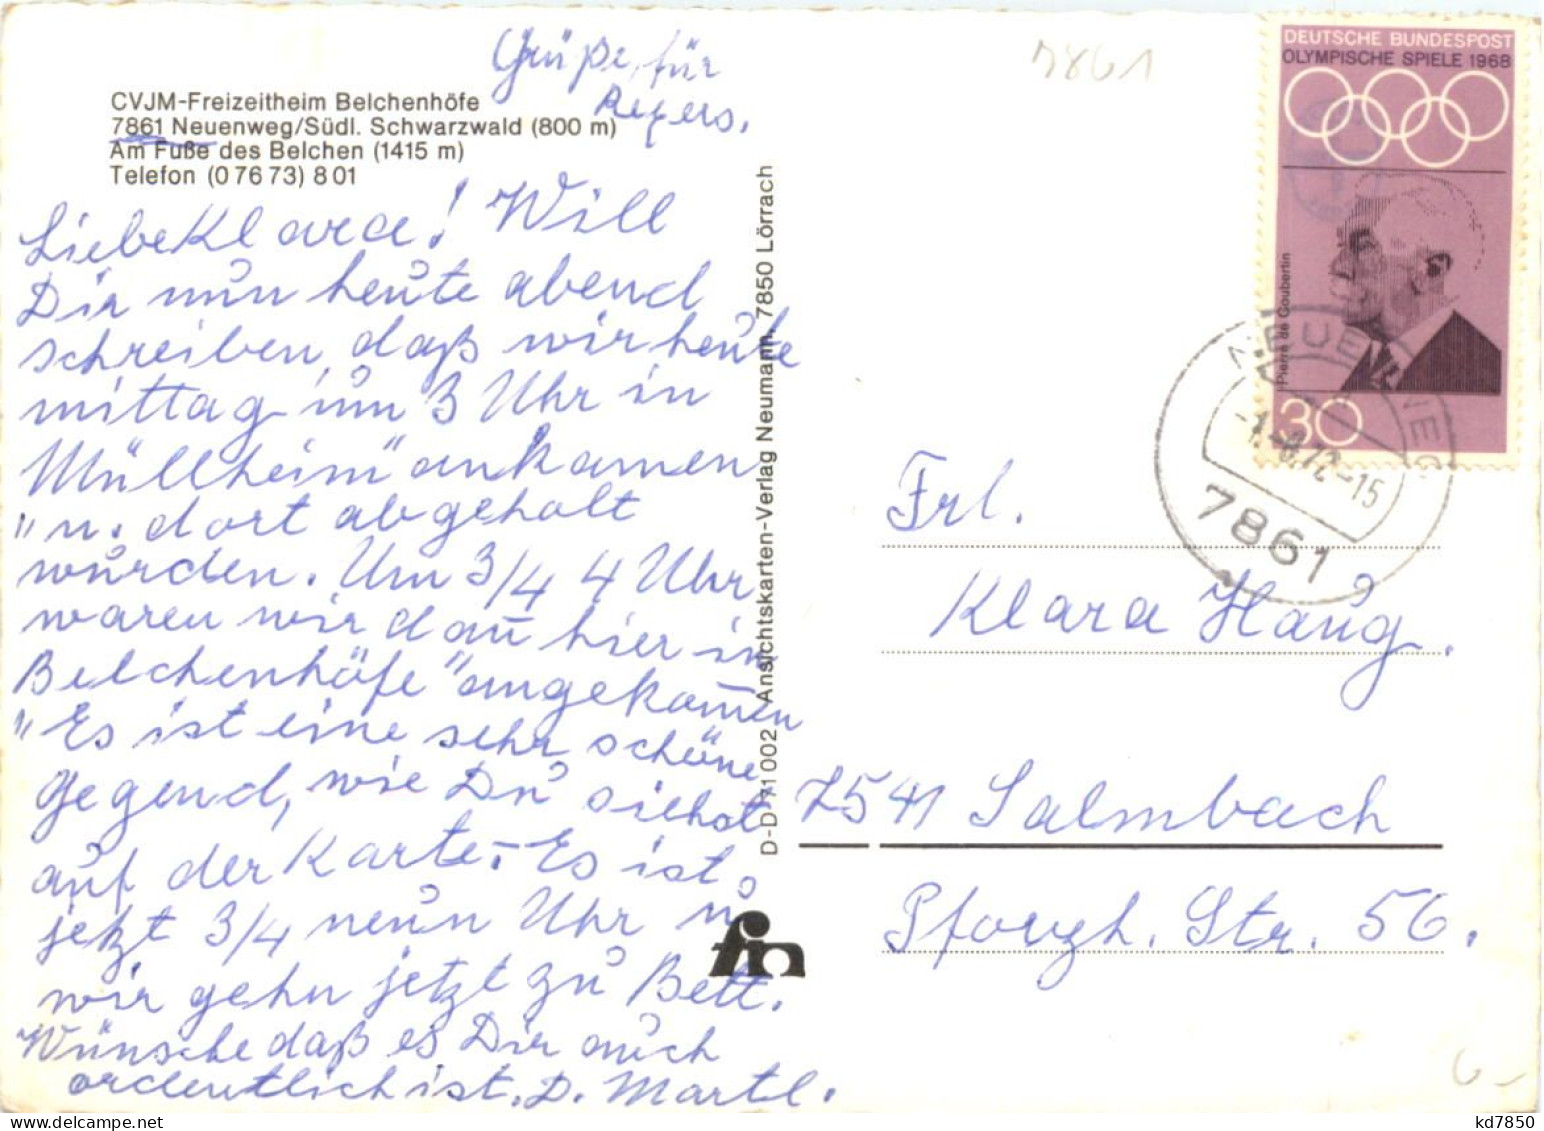 Grüße, für
Regers.
7861
CVJM-Freizeitheim Belchenhöfe
7861 Neuenweg/Südl. Schwarzwald (800 m)
Am Fuße des Belchen (1415 m)
Telefon (0 76 73) 8 01
Liebe Klara! Will
Dir nun heute abend
schreiben, daß wir heute
mittag um 3 Uhr in
Müllheim" ankamen
"u. dort abgeholt
wurden. Um 3/4 4 Uhr
waren wir dañ hier in
Belchenhöfe" angekom̄en
"Es ist eine sehr schöne
Gegend, wie Du siehst
auf der Karte. Es ist
jetzt 3/4 neun Uhr u.
wir gehn jetzt zu Bett.
Wünsche daß es Dir auch
ordentlich ist. D. Martl.
D-D 71002 Ansichtskarten-Verlag Neumann, 7850 Lörrach
fin
DEUTSCHE BUNDESPOST
OLYMPISCHE SPIELE 1968
Pierre de Coubertin
30
NEUENWEG
-1.-8.72-15
7861
Frl.
Klara Haug.
7541 Salmbach
Pforzh. Str. 56.
6-
kd7850